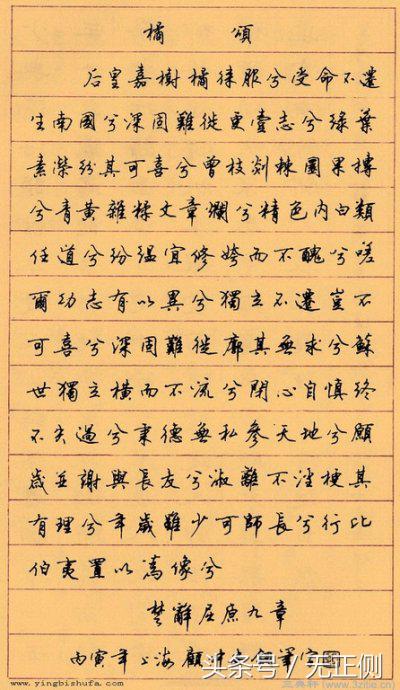 橘頌
后皇嘉樹橘徠服兮受命不遷
生南國兮深固難徙更壹志兮綠葉
素榮紛其可喜兮曾枝剡棘圜果摶
兮青黃雜糅文章爛兮精色內白類
任道兮紛縕宜修姱而不醜兮嗟
爾幼志有以異兮獨立不遷豈不
可喜兮深固難徙廓其無求兮蘇
世獨立橫而不流兮閉心自慎終
不失過兮秉德無私參天地兮願
歲並謝與長友兮淑離不淫梗其
有理兮年歲雖少可師長兮行比
伯夷置以為像兮
楚辭屈原九章
丙寅年上海顧
头条号 / 无正侧
www.yingbishufa.com